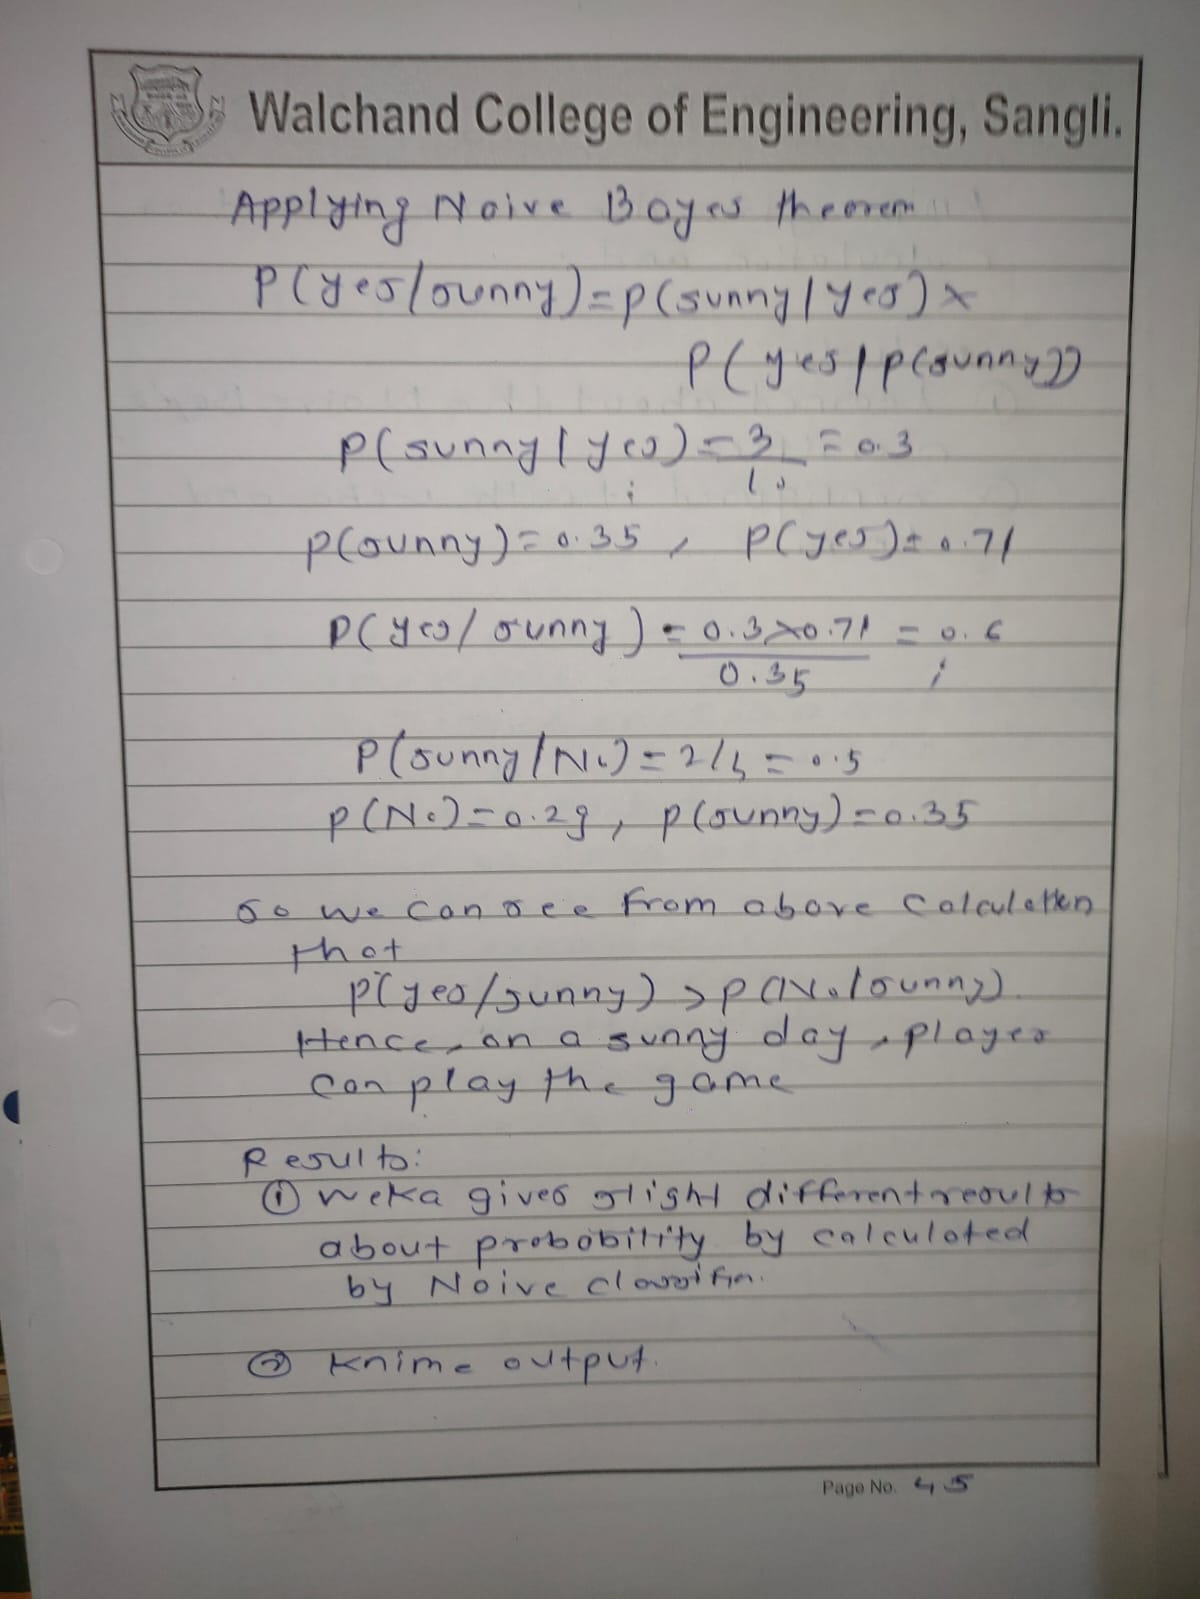 Walchand College of Engineering, Sangli.
Applying Naive Bayes theorem
P(yes/sunny)=p(sunny/yes)×
P(yes/p(sunny))
P(sunny/yes)=3/10=0.3
p(sunny)=0.35, P(yes)=0.71
P(yes/sunny)=0.3×0.71/0.35=0.6
P(sunny/No)=2/4=0.5
p(No)=0.29, p(sunny)=0.35
So we can see from above calculation
that
p(yes/sunny)>p(No/sunny).
Hence, on a sunny day, player
can play the game
Results:
① Weka gives slight different results
about probability by calculated
by Naive
② Knime output.
Page No. 45